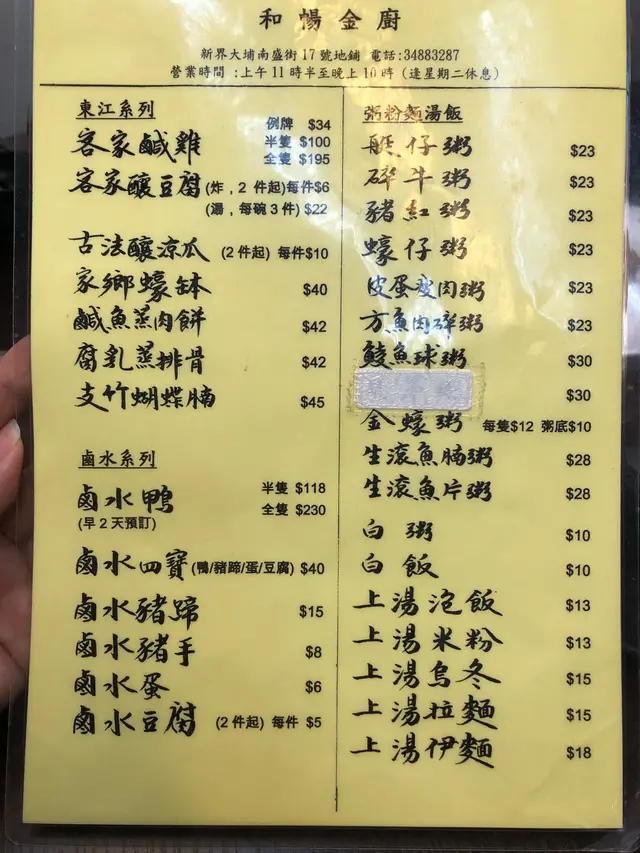 和暢金廚
新界大埔南盛街17號地鋪 電話:34883287
營業時間 :上午11時半至晚上10時 (逢星期二休息)
東江系列
客家鹹雞 例牌 $34
半隻 $100
全隻 $195
客家釀豆腐 (炸，2 件起)每件$6
(湯，每碗3件) $22
古法釀涼瓜 (2件起) 每件$10
家鄉蠔缽 $40
鹹魚蒸肉餅 $42
腐乳蒸排骨 $42
支竹蝴蝶腩 $45
鹵水系列
鹵水鴨 半隻 $118
(早2天預訂) 全隻 $230
鹵水四寶 (鴨/豬蹄/蛋/豆腐) $40
鹵水豬蹄 $15
鹵水豬手 $8
鹵水蛋 $6
鹵水豆腐 (2件起) 每件 $5
粥粉麵湯飯
艇仔粥 $23
碎牛粥 $23
豬紅粥 $23
蠔仔粥 $23
皮蛋瘦肉粥 $23
方魚肉碎粥 $23
鯪魚球粥 $30
$30
金蠔粥 每隻$12 粥底$10
生滾魚腩粥 $28
生滾魚片粥 $28
白粥 $10
白飯 $10
上湯泡飯 $13
上湯米粉 $13
上湯烏冬 $15
上湯拉麵 $15
上湯伊麵 $18